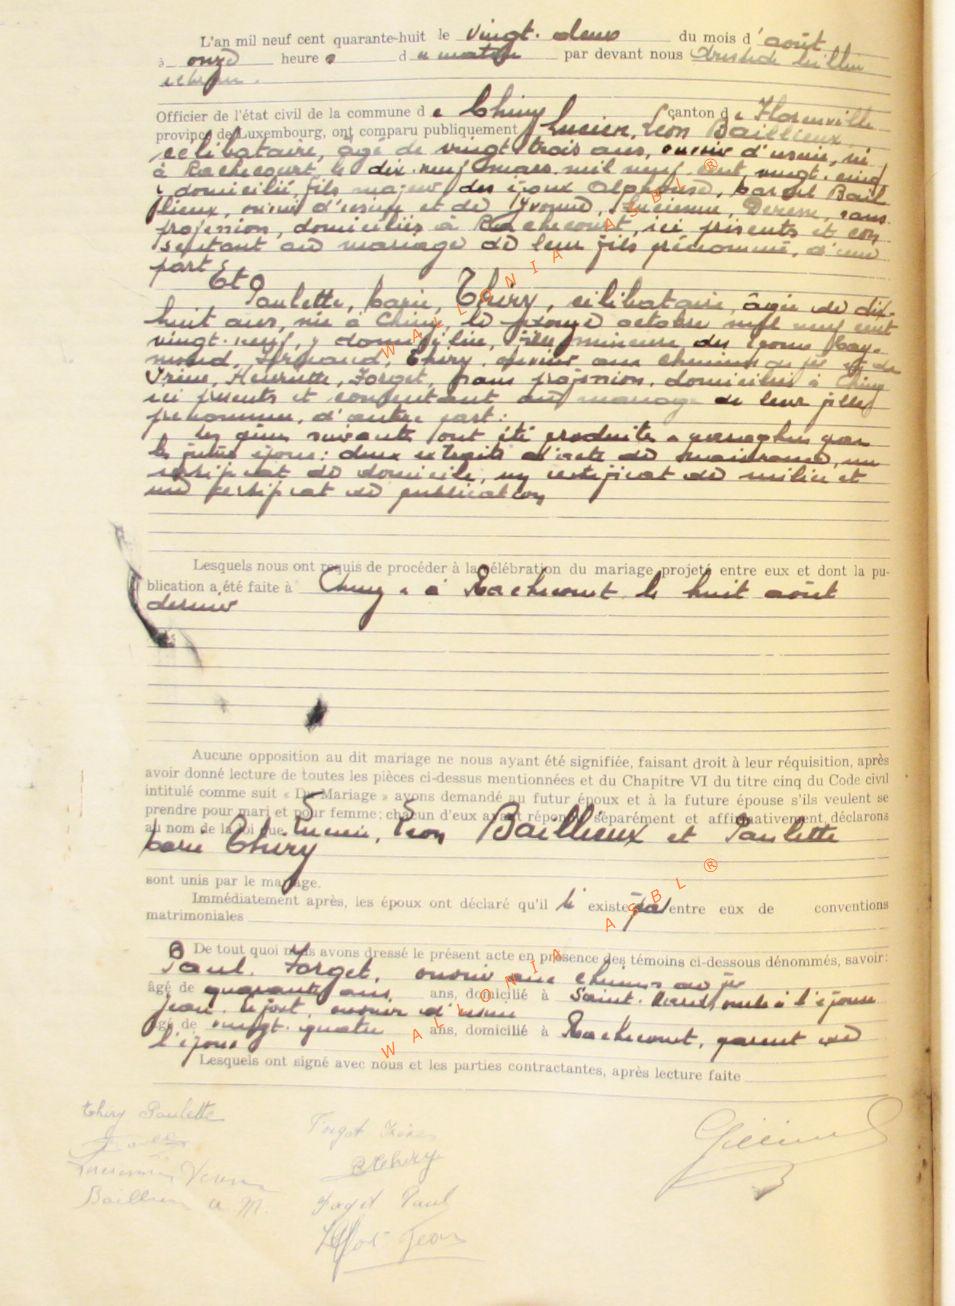 L'an mil neuf cent quarante-huit le vingt-deux du mois d'août
à onze heure s d u matin par devant nous
échevin.
Officier de l'état civil de la commune d e Chiny canton d e Florenville
province de Luxembourg, ont comparu publiquement Lucien, Léon Baillieux,
célibataire, âgé de vingt-trois ans, ouvrier d'usine, né
à Rachecourt, le dix-neuf mars mil neuf cent vingt-cinq
y domicilié, fils majeur des époux Alphonse, Marcel Bail
lieux, ouvrier d'usine et de Yvonne, Lucienne, sans
profession, domiciliés à Rachecourt, ici présents et con
sentant au mariage de leur fils prénommé, d'une
part;
Et
Paulette, Marie, Thiry, célibataire, âgée de dix-
huit ans, née à Chiny, le octobre mil neuf cent
vingt-neuf, y domiciliée, fille mineure des époux Ray-
mond, Armand, Thiry, ouvrier aux chemins de fer et de
Irène, Henriette, Forget, sans profession, domiciliés à Chiny
ici présents et consentant au mariage de leur fille
prénommée, d'autre part:
Les pièces suivantes ont été produites par
les futurs époux: deux extraits d'acte de naissance, un
certificat de domicile, un certificat de milice et
un certificat de publication
Lesquels nous ont requis de procéder à la célébration du mariage projeté entre eux et dont la pu-
blication a été faite à Chiny & à Rachecourt le huit août
dernier
Aucune opposition au dit mariage ne nous ayant été signifiée, faisant droit à leur réquisition, après
avoir donné lecture de toutes les pièces ci-dessus mentionnées et du Chapitre VI du titre cinq du Code civil
intitulé comme suit « Du Mariage » avons demandé au futur époux et à la future épouse s'ils veulent se
prendre pour mari et pour femme; chacun d'eux ayant répondu séparément et affirmativement, déclarons
au nom de la loi que Lucien, Léon Baillieux et Paulette
Marie Thiry
sont unis par le mariage.
Immédiatement après, les époux ont déclaré qu'il n' existe pas entre eux de conventions
matrimoniales
De tout quoi nous avons dressé le présent acte en présence des témoins ci-dessous dénommés, savoir:
Paul Forget, ouvrier aux chemins de fer
âgé de quarante ans, ans, domicilié à Saint- oncle à l'épouse
Jean Lefort, ouvrier d'usine
âgé de vingt-quatre ans, domicilié à Rachecourt, parent de
l'époux
Lesquels ont signé avec nous et les parties contractantes, après lecture faite
Thiry Paulette
Forget Irène
R Thiry
Baillieux A. M.
Forget Paul
Lefort Jean
WALLONIA ASBL ®
WALLONIA ASBL ®